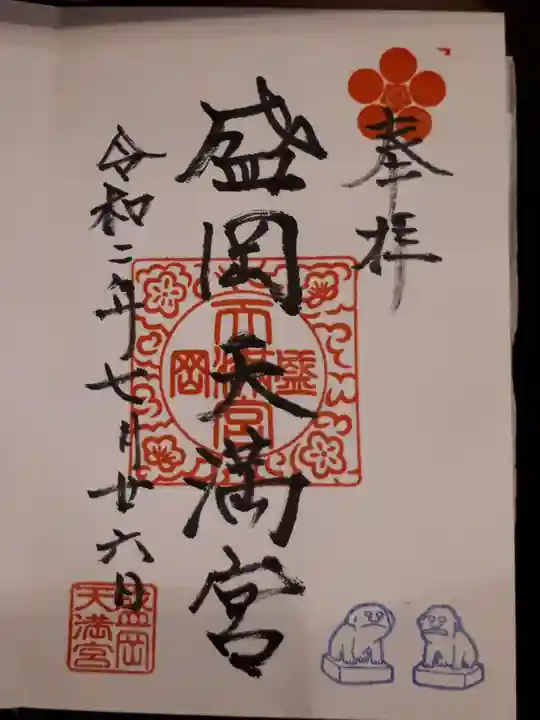 奉拝
盛岡天満宮
天満宮
盛岡
令和二年七月廿六日
盛岡
天満宮